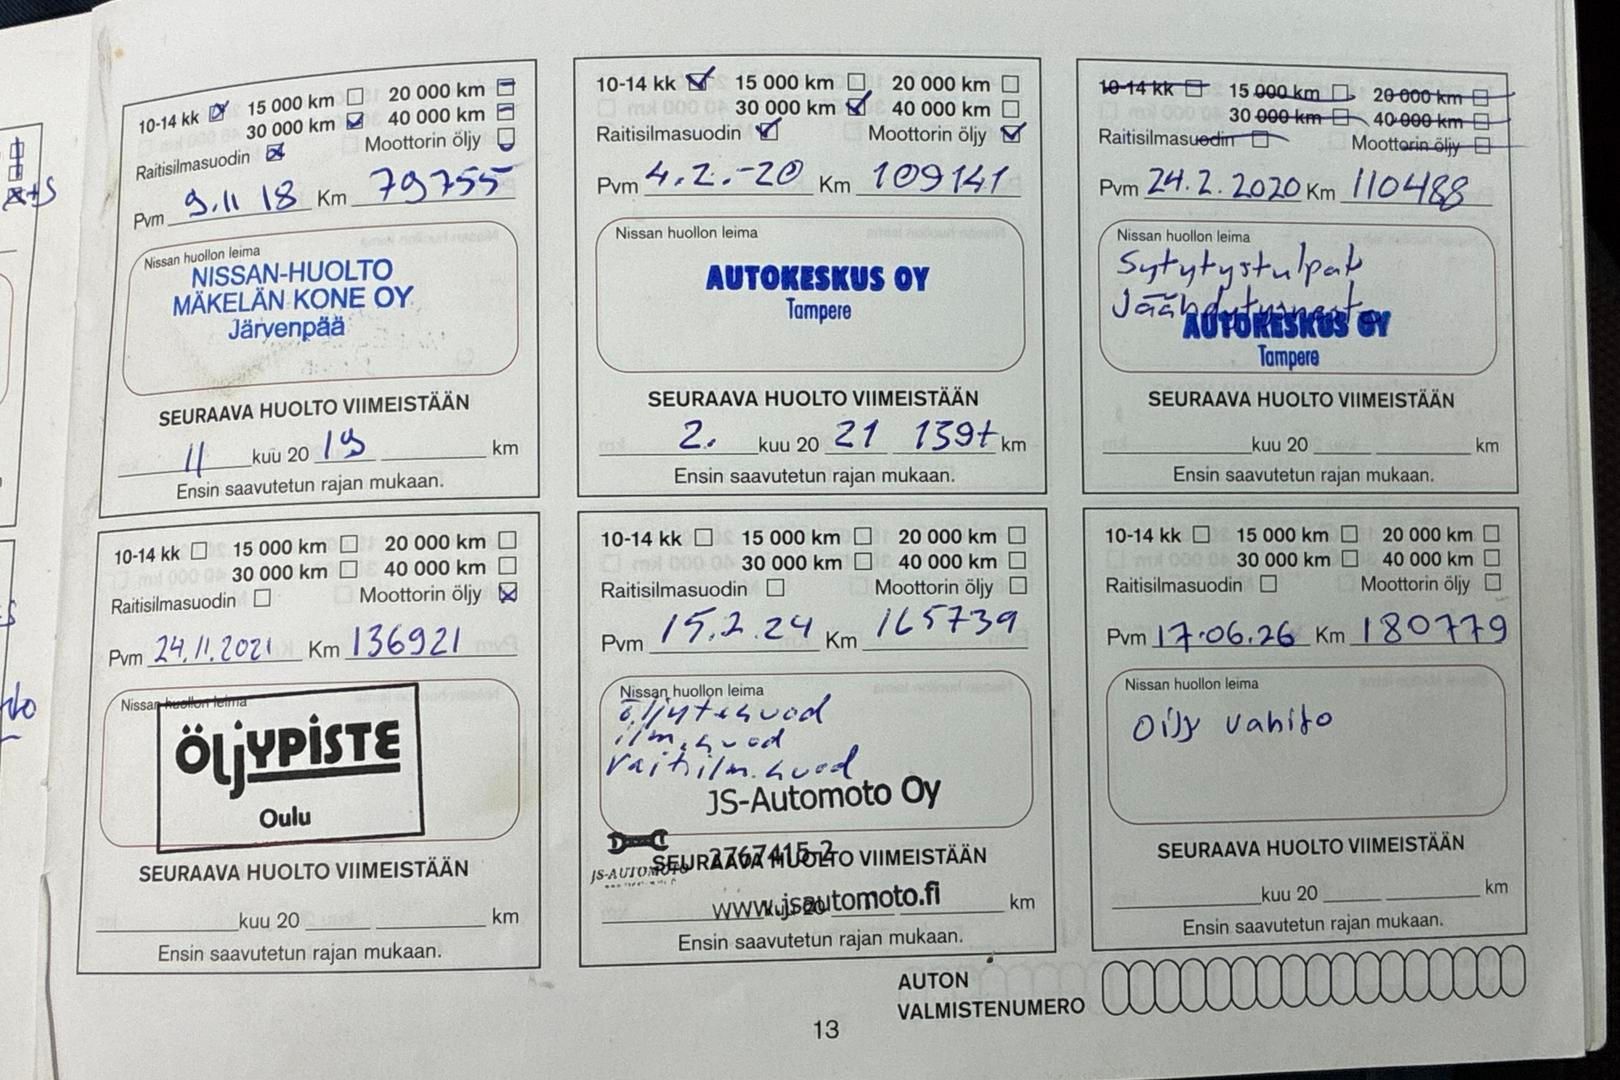 10-14 kk 15 000 km 20 000 km
30 000 km 40 000 km
Raitisilmasuodin Moottorin öljy
Pvm 9.11 18 Km 79755
Nissan huollon leima
NISSAN-HUOLTO
MÄKELÄN KONE OY
Järvenpää
SEURAAVA HUOLTO VIIMEISTÄÄN
11 kuu 20 19 km
Ensin saavutetun rajan mukaan.
10-14 kk 15 000 km 20 000 km
30 000 km 40 000 km
Raitisilmasuodin Moottorin öljy
Pvm 4.2.-20 Km 109141
Nissan huollon leima
AUTOKESKUS OY
Tampere
SEURAAVA HUOLTO VIIMEISTÄÄN
2. kuu 20 21 139t km
Ensin saavutetun rajan mukaan.
10-14 kk 15 000 km 20 000 km
30 000 km 40 000 km
Raitisilmasuodin Moottorin öljy
Pvm 24.2.2020 Km 110488
Nissan huollon leima
Sytytystulpat
Jäähdytysneste
AUTOKESKUS OY
Tampere
SEURAAVA HUOLTO VIIMEISTÄÄN
kuu 20 km
Ensin saavutetun rajan mukaan.
10-14 kk 15 000 km 20 000 km
30 000 km 40 000 km
Raitisilmasuodin Moottorin öljy
Pvm 24.11.2021 Km 136921
Nissan huollon leima
ÖLJYPISTE
Oulu
SEURAAVA HUOLTO VIIMEISTÄÄN
kuu 20 km
Ensin saavutetun rajan mukaan.
10-14 kk 15 000 km 20 000 km
30 000 km 40 000 km
Raitisilmasuodin Moottorin öljy
Pvm 15.2.24 Km 165739
Nissan huollon leima
öljyt+suod
ilm.suod
raitilm.suod
JS-Automoto Oy
2767415-2
JS-AUTOMOTO
SEURAAVA HUOLTO VIIMEISTÄÄN
www.jsautomoto.fi
kuu 20 km
Ensin saavutetun rajan mukaan.
10-14 kk 15 000 km 20 000 km
30 000 km 40 000 km
Raitisilmasuodin Moottorin öljy
Pvm 17.06.26 Km 180779
Nissan huollon leima
Oijy vahito
SEURAAVA HUOLTO VIIMEISTÄÄN
kuu 20 km
Ensin saavutetun rajan mukaan.
AUTON
VALMISTENUMERO
13